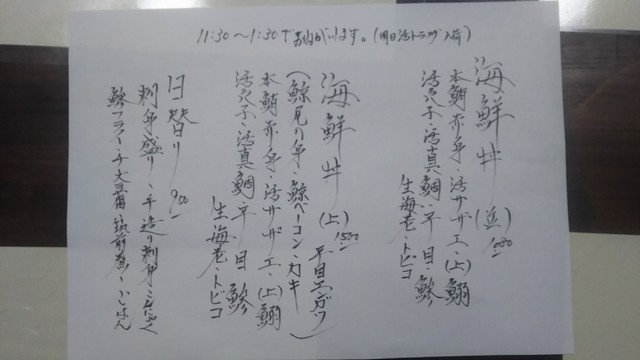 11:30〜1:30でお願いします。(明日活トラフグ入荷)
海鮮丼(並)1080
本鮪赤身・活サザエ・(上)鰤
活穴子・活真鯛・平目・鯵
生海老・トビコ
海鮮丼(上)1500
(鯨尾の身・鯨ベーコン・カキ 平目エンガワ)
本鮪赤身・活サザエ・(上)鰤
活穴子・活真鯛・平目・鯵
生海老・トビコ
日替り 900
刺身盛り・手造り刺身こんにゃく
鯵フライ 大豆 筑前煮・ごはん